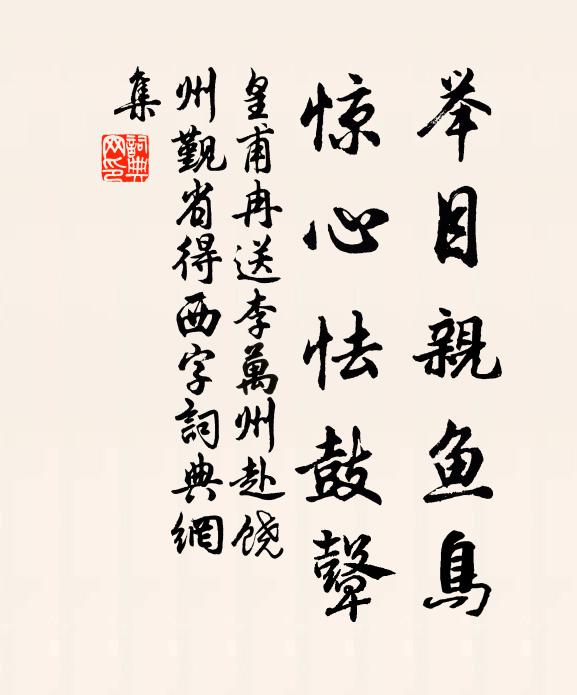 举目親鱼鳥
惊心怯鼓鼙
皇甫冉送李萬州赴饶
州覲省得西字詞典網
集
詞典
网印